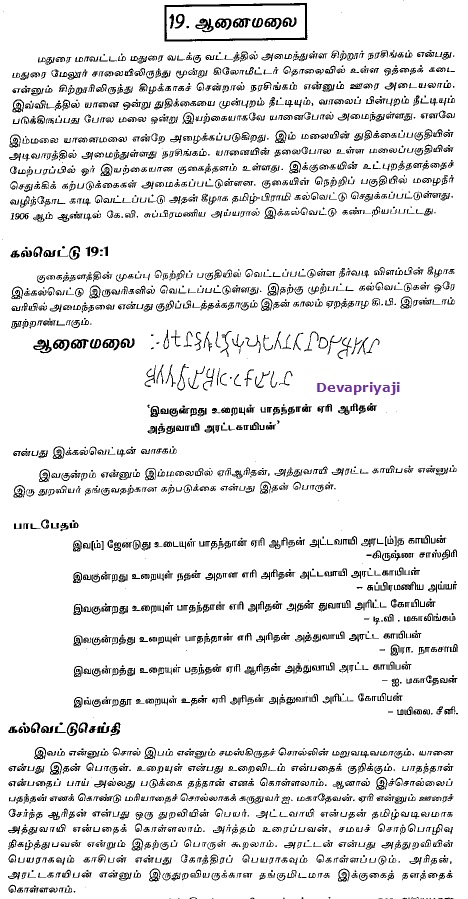 19. ஆனைமலை
மதுரை மாவட்டம் மதுரை வடக்கு வட்டத்தில் அமைந்துள்ள சிற்றூர் நரசிங்கம் என்பது.
மதுரை மேலூர் சாலையிலிருந்து மூன்று கிலோமீட்டர் தொலைவில் உள்ள ஒத்தைக் கடை
என்னும் சிற்றூரிலிருந்து கிழக்காகச் சென்றால் நரசிங்கம் என்னும் ஊரை அடையலாம்.
இவ்விடத்தில் யானை ஒன்று துதிக்கையை முன்புறம் நீட்டியும், வாலைப் பின்புறம் நீட்டியும்
படுக்திருப்பது போல மலை ஒன்று இயற்கையாகவே யானைபோல் அமைந்துள்ளது. எனவே
இம்மலை யானைமலை என்றே அழைக்கப்படுகிறது. இம் மலையின் துதிக்கைப்பகுதியின்
அடிவாரத்தில் அமைந்துள்ளது நரசிங்கம். யானையின் தலைபோல உள்ள மலைப்பகுதியின்
மேற்பரப்பில் ஓர் இயற்கையான குகைத்தளம் உள்ளது. இக்குகையின் உட்புறத்தளத்தைச்
செதுக்கிக் கற்படுக்கைகள் அமைக்கப்பட்டுள்ளன. குகையின் நெற்றிப் பகுதியில் மழைநீர்
வழிந்தோட காடி வெட்டப்பட்டு அதன் கீழாக தமிழ்-பிராமி கல்வெட்டு செதுக்கப்பட்டுள்ளது.
1906 ஆம் ஆண்டில் கே.வி. சுப்பிரமணிய அய்யரால் இக்கல்வெட்டு கண்டறியப்பட்டது.
கல்வெட்டு 19:1
குகைத்தளத்தின் முகப்பு நெற்றிப் பகுதியில் வெட்டப்பட்டுள்ள நீர்வடி விளம்பின் கீழாக
இக்கல்வெட்டு இருவரிகளில் வெட்டப்பட்டுள்ளது. இதற்கு முற்பட்ட கல்வெட்டுகள் ஒரே
வரியில் அமைந்தவை என்பது குறிப்பிடத்தக்கதாகும் இதன் காலம் ஏறத்தாழ கி.பி. இரண்டாம்
நூற்றாண்டாகும்.
ஆனைமலை
Devapriyaji
'இவகுன்றது உறையுள் பாதந்தான் ஏரி ஆரிதன்
அத்துவாயி அரட்டகாயிபன்'
என்பது இக்கல்வெட்டின் வாசகம்
இவகுன்றம் என்னும் இம்மலையில் ஏரிஆரிதன், அத்துவாயி அரட்ட காயிபன் என்னும்
இரு துறவியர் தங்குவதற்கான கற்படுக்கை என்பது இதன் பொருள்.
பாடபேதம்
இவ[ம்] ஜேனடுது உடையுள் பாதந்தான் ஏரி ஆரிதன் அட்டவாயி அரட[ம்]த காயிபன்
–கிருஷ்ண சாஸ்திரி
இவகுன்றது உறையுள் நதன் அதான எரி அரிதன் அட்டவாயி அரட்டகாயிபன்
– சுப்பிரமணிய அய்யர்
இவகுன்றது உறையுள் பாதந்தான் எரி அரிதன் அதன் துவாயி அரிட்ட கோயிபன்
– டி.வி . மகாலிங்கம்
இவகுன்றத்து உறையுள் பாதந்தான் எரி அரிதன் அத்துவாயி அரட்ட காயிபன்
– இரா. நாகசாமி
இவகுன்றத்து உறையுள் பதந்தன் ஏரி ஆரிதன் அத்துவாயி அரட்ட காயிபன்
– ஐ. மகாதேவன்
இவ்குன்றதூ உறையுள் உதன் ஏரி அரிதன் அத்துவாயி அரிட்ட கோயிபன்
– மயிலை. சீனி.
கல்வெட்டுசெய்தி
இவம் என்னும் சொல் இபம் என்னும் சமஸ்கிருதச் சொல்லின் மறுவடிவமாகும். யானை
என்பது இதன் பொருள். உறையுள் என்பது உறைவிடம் என்பதைக் குறிக்கும். பாதந்தான்
என்பதைப் பாய் அல்லது படுக்கை தந்தான் எனக் கொள்ளலாம். ஆனால் இச்சொல்லைப்
பதந்தன் எனக் கொண்டு மரியாதைச் சொல்லாகக் கருதுவர் ஐ. மகாதேவன். ஏரி என்னும் ஊரைச்
சேர்ந்த ஆரிதன் என்பது ஒரு துறவியின் பெயர். அட்டவாயி என்பதன் தமிழ்வடிவமாக
அத்துவாயி என்பதைக் கொள்ளலாம். அர்த்தம் உரைப்பவன், சமயச் சொற்பொழிவு
நிகழ்த்துபவன் என்றும் இதற்குப் பொருள் கூறலாம். அரட்டன் என்பது அத்துறவியின்
பெயராகவும் காசிபன் என்பது கோத்திரப் பெயராகவும் கொள்ளப்படும். அரிதன்,
அரட்டகாயிபன் என்னும் இருதுறவியருக்கான தங்குமிடமாக இக்குகைத் தளத்தைக்
கொள்ளலாம்.